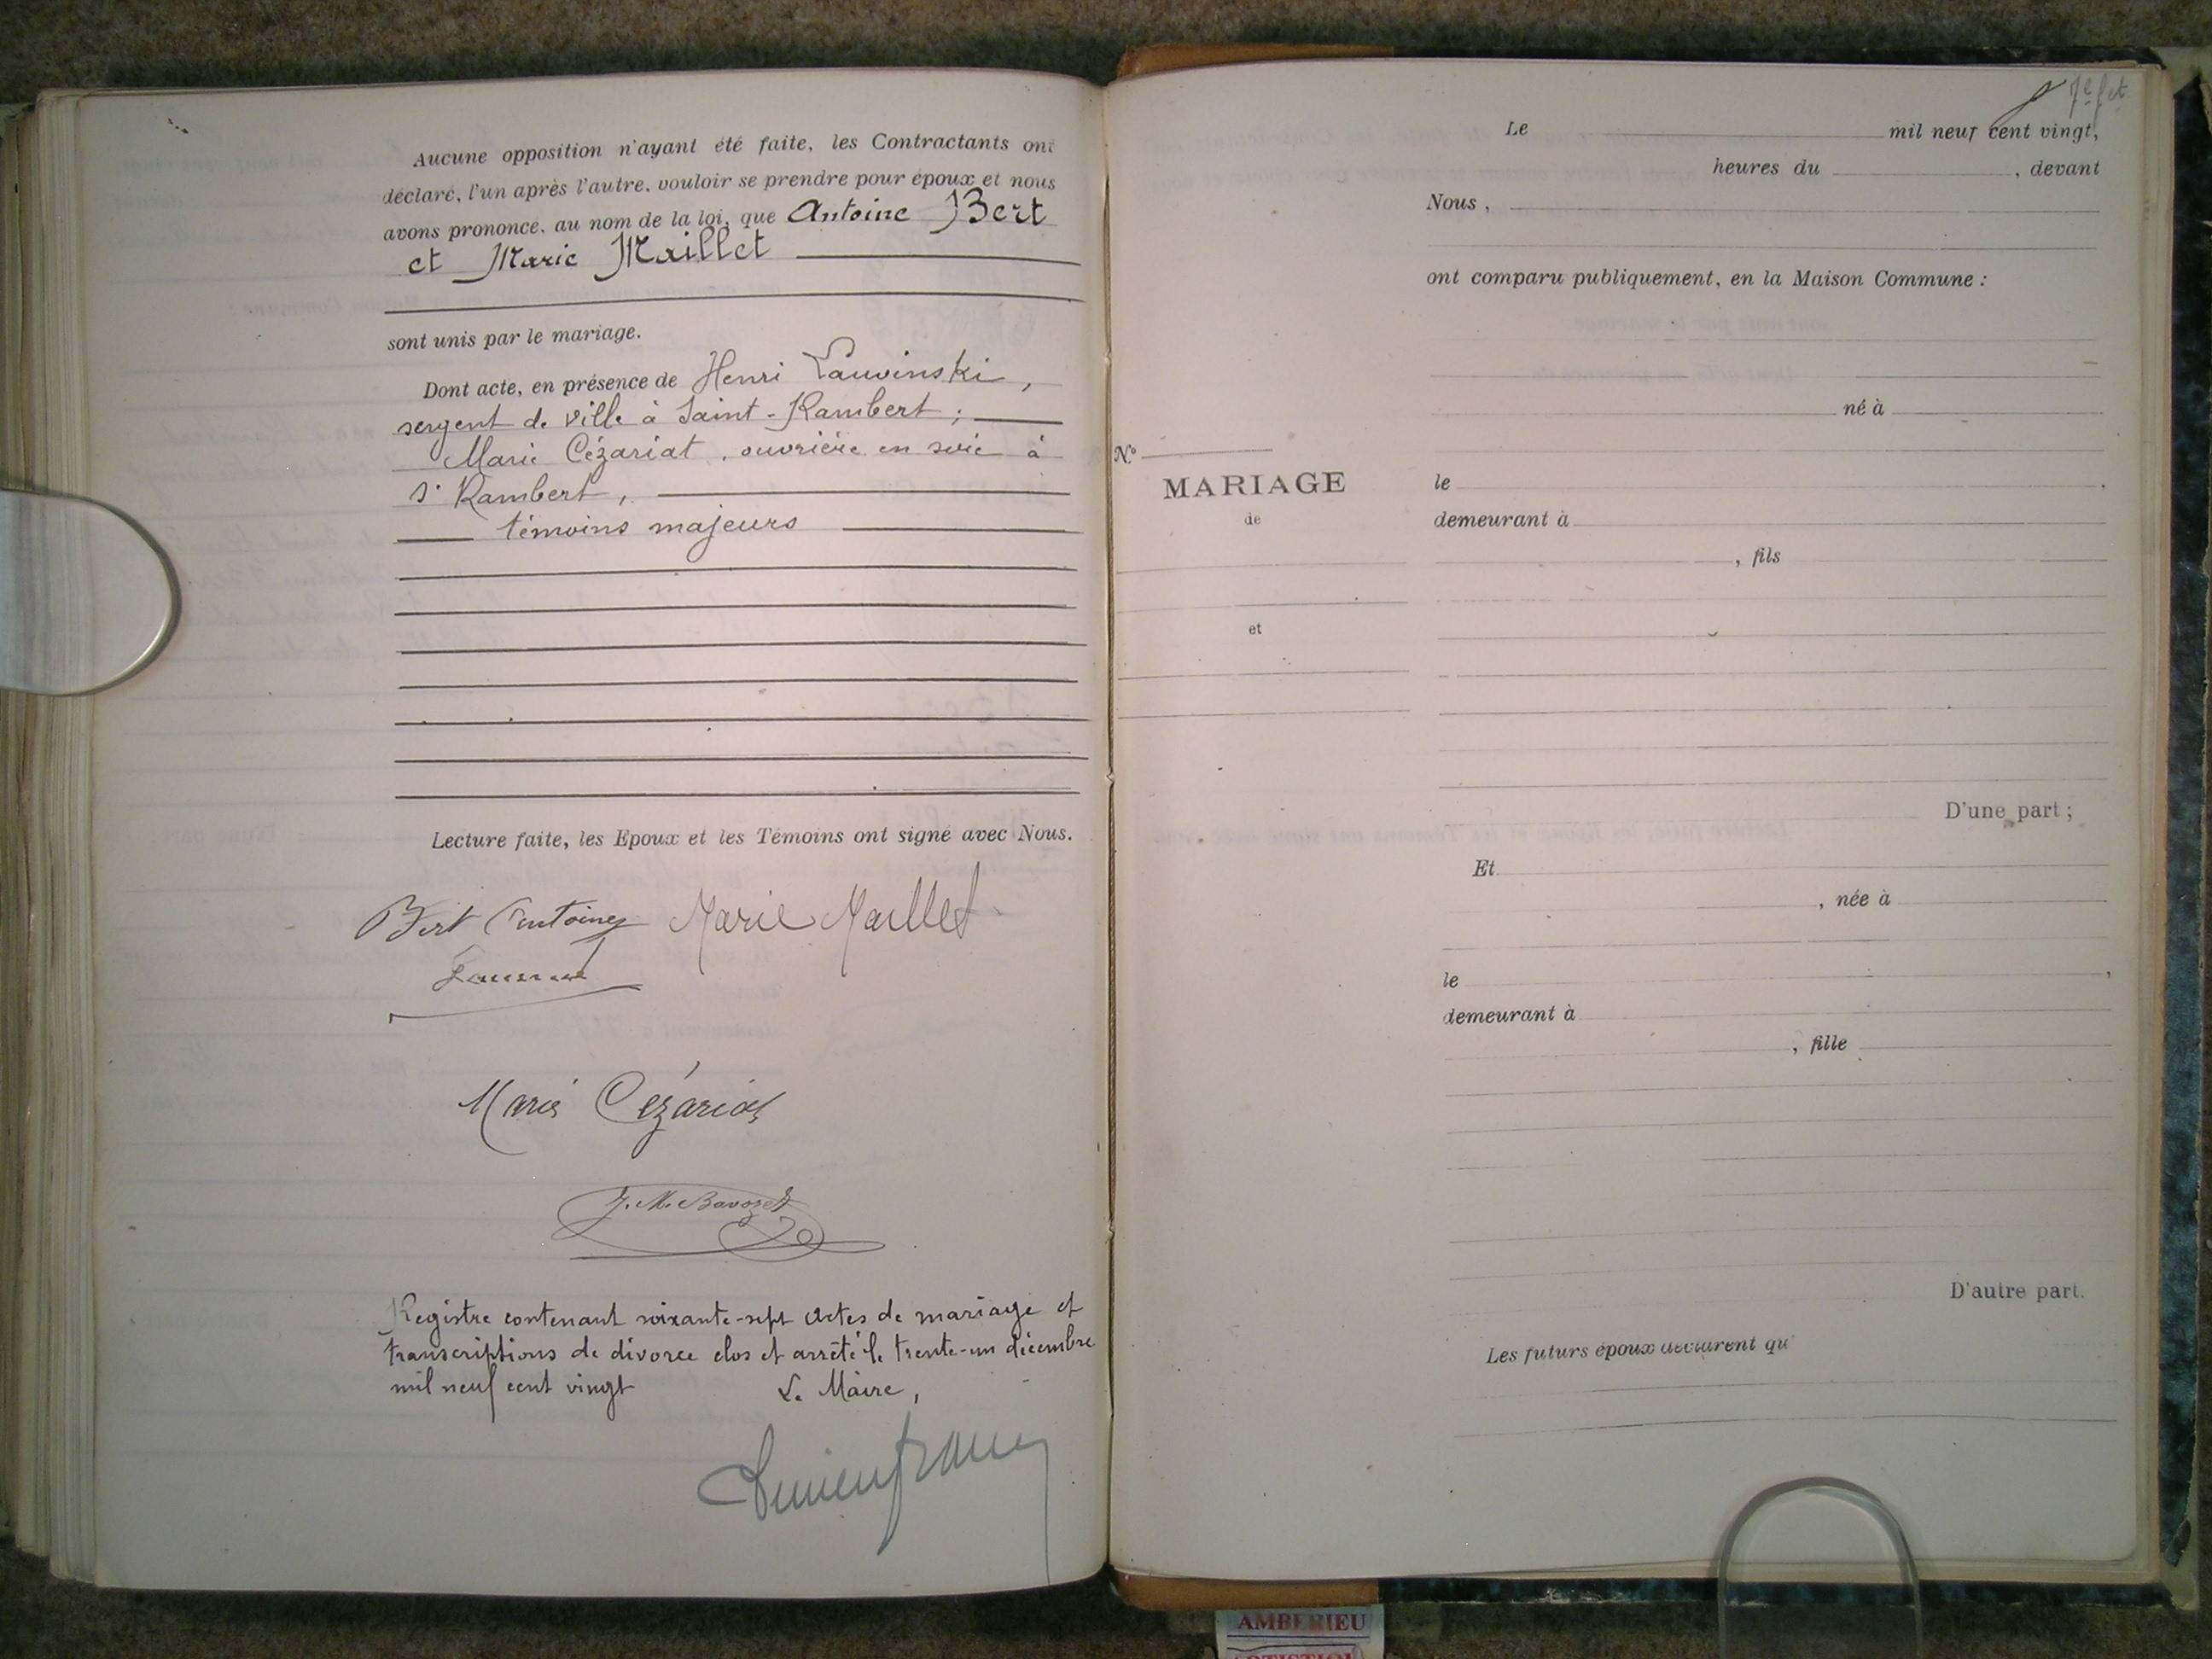 Aucune opposition n'ayant été faite, les Contractants ont
déclaré, l'un après l'autre, vouloir se prendre pour époux et nous
avons prononcé, au nom de la loi, que Antoine Bert
et Marie Maillet
sont unis par le mariage.
Dont acte, en présence de Henri Lauvinski,
sergent de ville à Saint-Rambert ;
Marie Cézariat, ouvrière en soie à
St Rambert,
témoins majeurs
Lecture faite, les Epoux et les Témoins ont signé avec Nous.
Bert Antoine Marie Maillet
Marie Cézariat
J. M. Bavozet
Registre contenant soixante-sept actes de mariage et
transcriptions de divorce clos et arrêté le trente-un décembre
mil neuf cent vingt Le Maire,
Le mil neuf cent vingt,
heures du , devant
Nous,
ont comparu publiquement, en la Maison Commune :
né à
N°
MARIAGE
de
et
le
demeurant à
, fils
D'une part ;
Et
, née à
le
demeurant à
, fille
D'autre part.
Les futurs époux déclarent qu
AMBERIEU